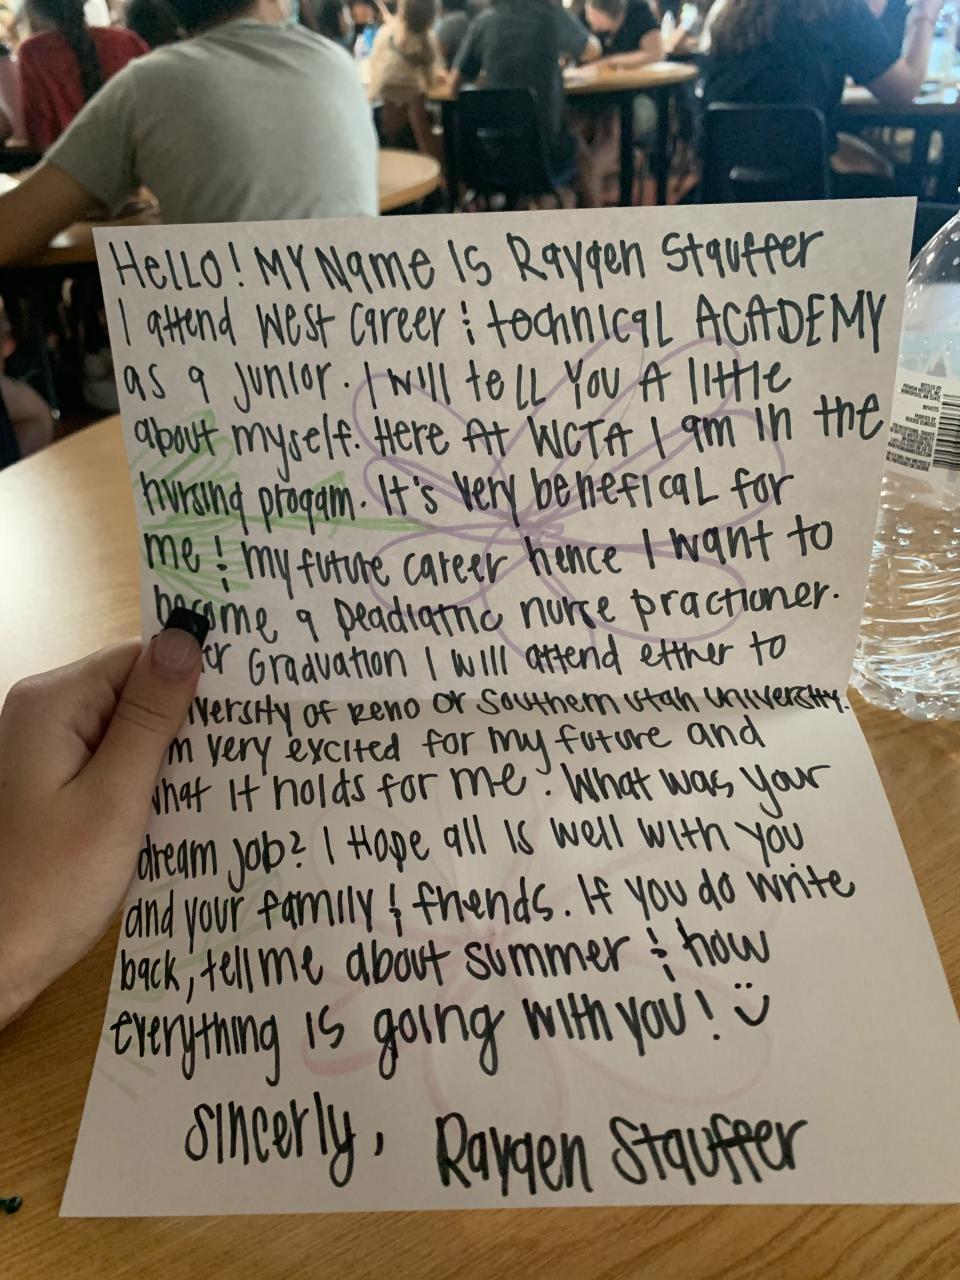 Hello! My Name Is Raygen Stauffer
I attend West Career & technical ACADEMY
as a junior. I will tell You A little
about myself. Here At WCTA I am in the
nursing progam. It's very benefical for
me & my future career hence I want to
become a peadiatric nurse practioner.
Graduation I will attend either to
of Reno or Southern Utah University.
very excited for my future and
what it holds for me. What was your
dream job? I Hope all is well with you
and your family & friends. If you do write
back, tell me about summer & how
everything is going with you! :)
Sincerly, Raygen Stauffer